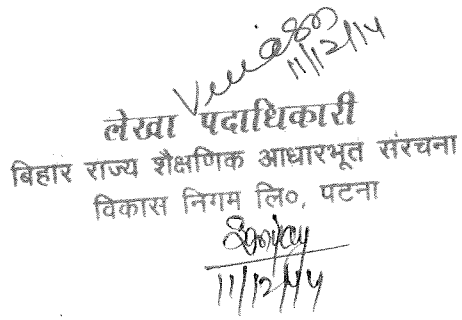 11/12/14
लेखा पदाधिकारी
बिहार राज्य शैक्षणिक आधारभूत संरचना
विकास निगम लि०, पटना
Sanjay
11/12/14